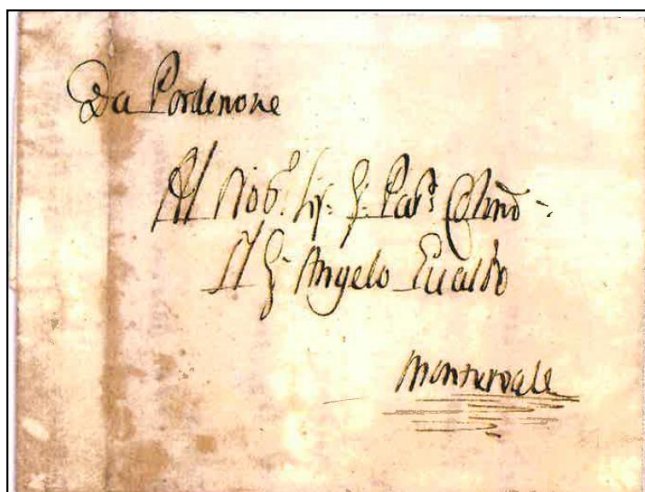 Da Pordenone
Al Nob. Sig. Pat. Colmo
Il Sig. Angelo
Montereale